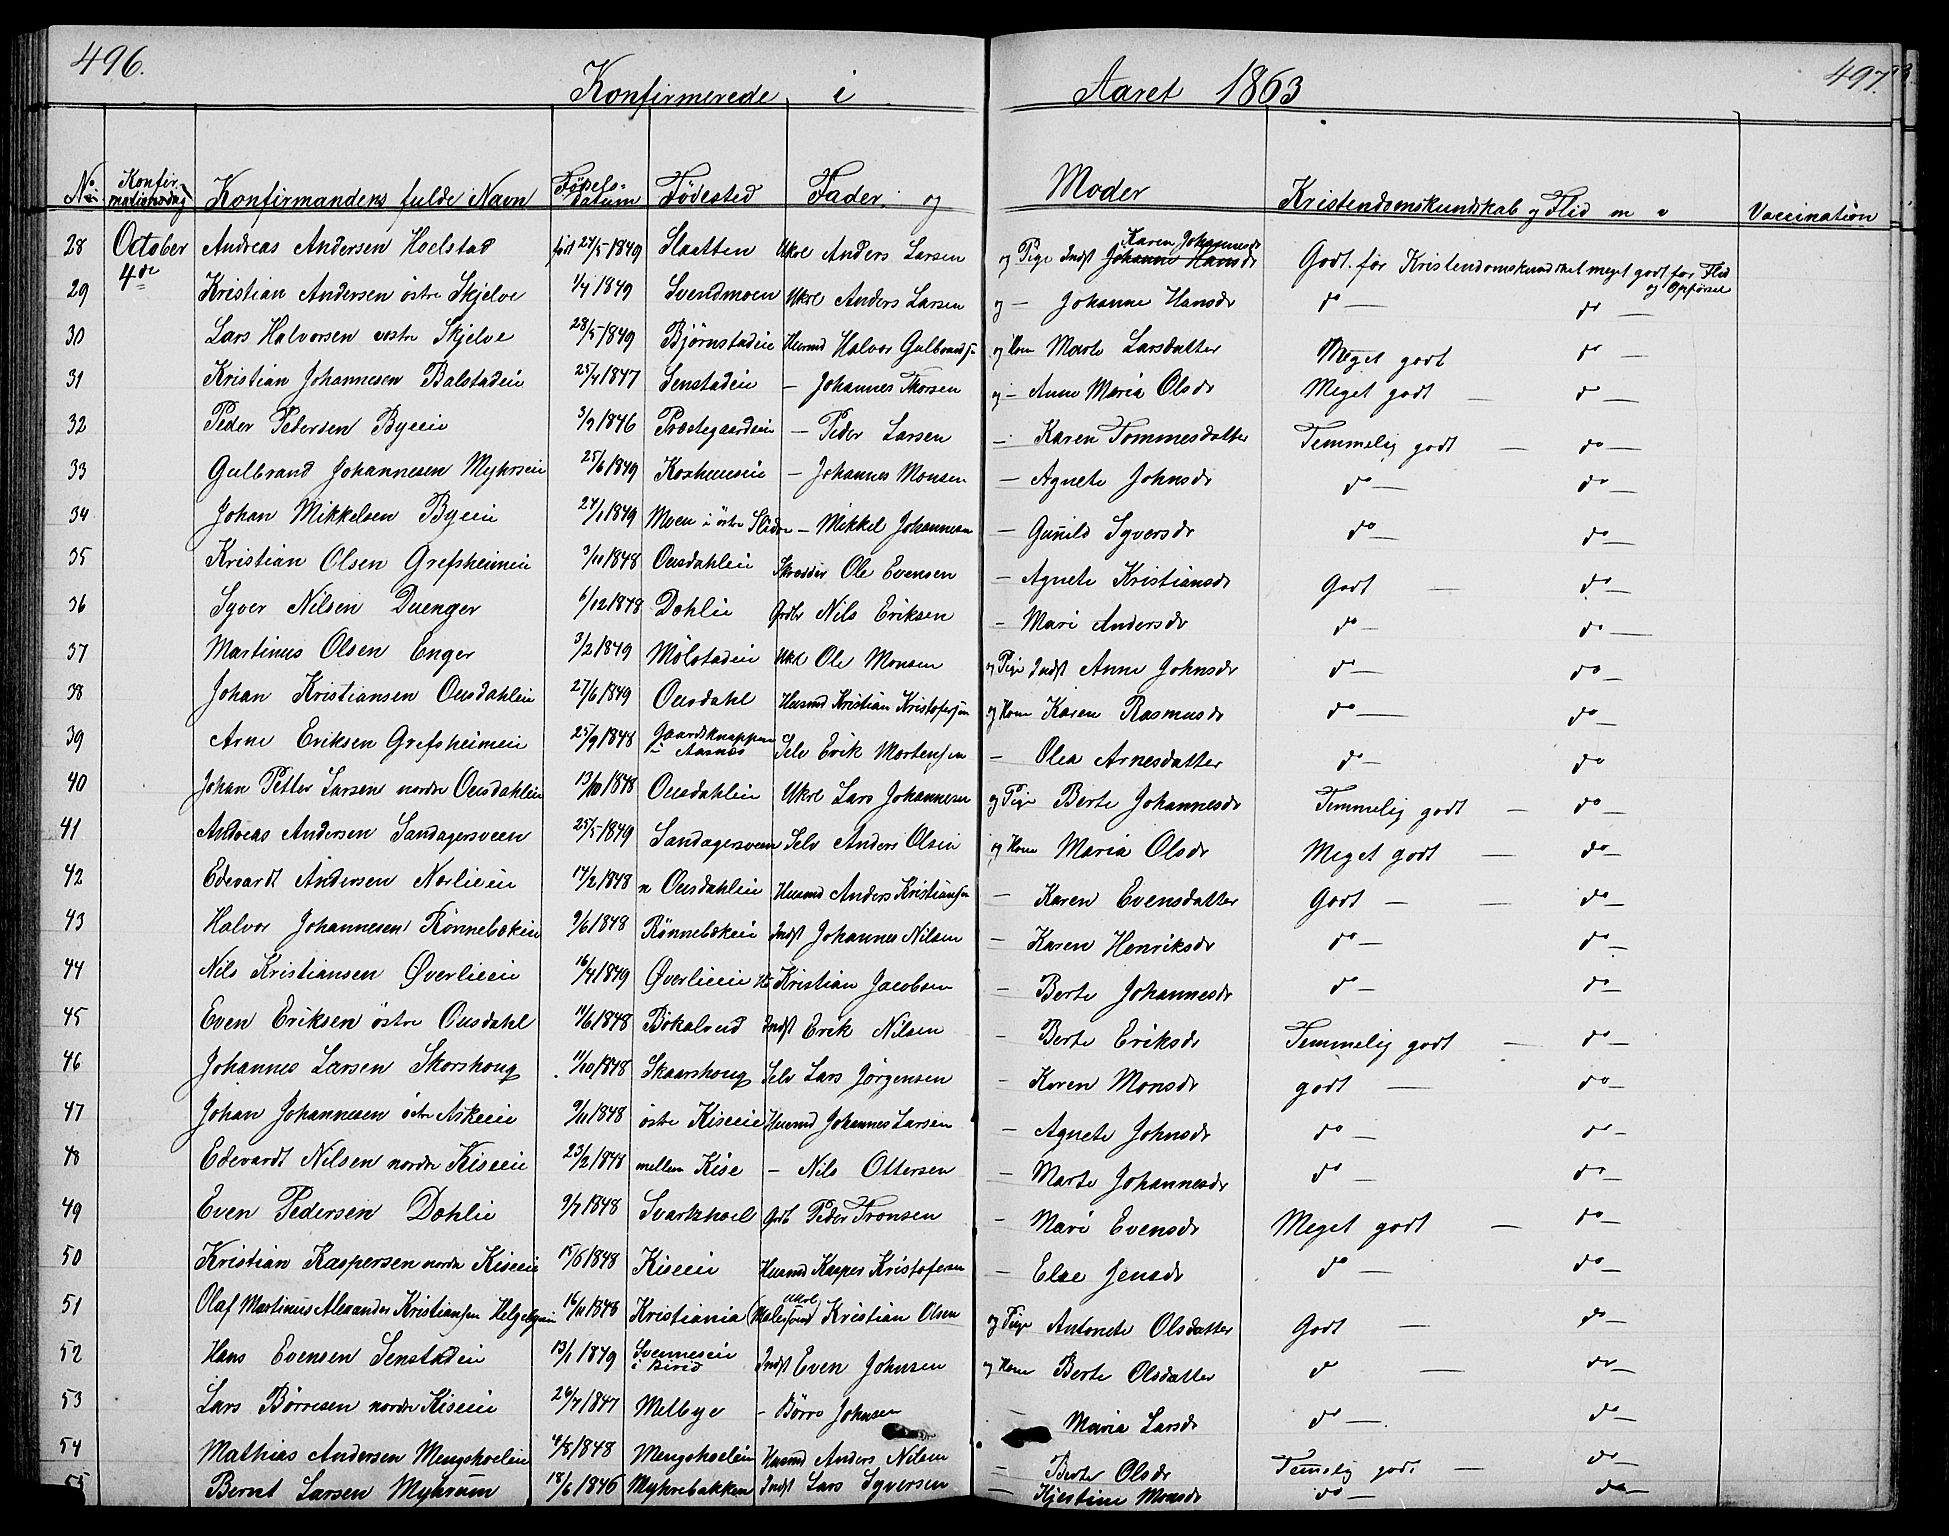 496.
Konfirmerede i Aaret 1863
497.
No Konfirmationsdag Konfirmandens fulde Navn Fødselsdatum Födested Fader og Moder Kristendomskundskab og Flid m v Vaccination
28 October 4de Andreas Andersen Hoelstad født 24/5 1849 Slaatten Ukrl Anders Larsen og Pige Indst Johanne Hansdr Karen Johannesdr Godt for Kristendomskundskab meget godt for Flid og Opførsel
29 Kristian Andersen östre Skjelve 1/4 1849 Svendmoen Ukrl Anders Larsen og — Johanne Hansdr do — do —
30 Lars Halvorsen vestre Skjelve 28/5 1849 Bjørnstadeie Husmd Halvor Gulbrandsn og Kone Marte Larsdatter Meget godt do —
31 Kristian Johannesen Balstadeie 25/4 1847 Senstadeie — Johannes Thorsen og — Anne Maria Olsdr Meget godt — do —
32 Peder Pedersen Byeeie 3/9 1846 Præstegaardeie — Peder Larsen — Karen Tommesdatter Temmelig godt — do —
33 Gulbrand Johannesen Myhrseie 25/6 1849 Koshaueeie — Johannes Monsen — Agnete Johnsdr do — do —
34 Johan Mikkelsen Byeeie 24/1 1849 Moen i östre Slidre — Mikkel Johannesen — Gunild Syversdr do — do —
35 Kristian Olsen Grefsheimeie 3/11 1848 Ousdahleie Skrædder Ole Evensen — Agnete Kristiansdr Godt — do —
36 Syver Nilsen Duenger 6/12 1848 Dohlie Grdbr Nils Eriksen — Mari Andersdr do — do —
37 Martinus Olsen Enger 3/2 1849 Mölstadeie Ukrl Ole Monsen og Pige Indst Anne Johnsdr do — do —
38 Johan Kristiansen Ousdahleie 27/6 1849 Ousdahl Husmd Kristian Kristofersn og Kone Karen Rasmusdr do — do —
39 Arne Eriksen Grefsheimeie 25/9 1848 Gaardsknappen i Aasnes Selv Erik Mortensen — Olea Arnesdatter do — do
40 Johan Petter Larsen nordre Ousdahleie 13/10 1848 Ousdahleie Ukrl Lars Johannesen og Pige Berte Johannesdr Temmelig godt — do —
41 Andreas Andersen Sandagersveen 25/5 1849 Sandagersveen Selv Anders Olsen og Kone Maria Olsdr Meget godt — do —
42 Edevardt Andersen Norlieeie 14/2 1848 n Ousdahleie Husmd Anders Kristiansn — Karen Evensdatter Godt — — do —
43 Halvor Johannesen Rönnebækeie 9/6 1848 Rönnebekeie Indst Johannes Nilsen — Karen Henriksdr do — do —
44 Nils Kristiansen Øverlieeie 16/4 1849 Øverlieeie Kristian Jacobsen — Berte Johannesdr do — do —
45 Even Eriksen östre Ousdahl 11/6 1848 Bökalveid Indst Erik Nilsen — Berte Eriksdr Temmelig godt — do —
46 Johannes Larsen Skorshoug 11/10 1848 Skaarshoug Selv Lars Jörgensen — Karen Monsdr godt — do —
47 Johan Johannesen östre Askeeie 9/11 1848 östre Kiseeie Husmd Johannes Larsen — Agnete Johnsdr do — do —
48 Edevardt Nilsen nordre Kiseeie 23/2 1848 mellem Kise — Nils Ottersen — Marte Johannesdr do — do —
49 Even Pedersen Dohlie 9/7 1848 Svartshoel Grdb Peder Tronsen — Mari Evensdr Meget godt — do —
50 Kristian Kaspersen nordre Kiseeie 15/6 1848 Kiseeie Husmd Kasper Kristofersen — Else Jensdr do — do —
51 Olaf Martinus Alexander Kristiansen Helgebyeie 16/11 1848 Kristiania Ukrl Kristian Olsen og Pige Antonete Olsdatter Godt — do —
52 Hans Evensen Senstadeie 13/1 1849 Svenneseie i Birid Indst Even Johnsen og Kone Berte Olsdatter do — do —
53 Lars Börresen nordre Kiseeie 26/7 1847 Melbye — Börre Johnsen — Maria Larsdr do — do —
54 Mathias Andersen Mengshoeleie 4/8 1848 Mengshoeleie Husmd Anders Nilsen — Berte Olsdr Temmelig godt — do —
55 Bernt Larsen Myhrum 18/6 1846 Myhrebakken Indst Lars Syversen — Kjestine Monsdr do — do —